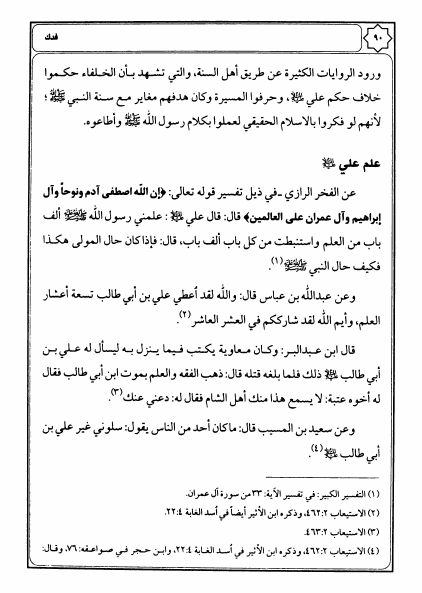 ٩٠
فدك
ورود الروايات الكثيرة عن طريق أهل السنة، والتي تشهد بأن الخلفاء حكموا
خلاف حكم علي ﷺ، وحرفوا المسيرة وكان هدفهم مغاير مع سنة النبي ﷺ؛
لأنهم لو فكروا بالاسلام الحقيقي لعملوا بكلام رسول الله ﷺ وأطاعوه.
علم علي
عن الفخر الرازي ـ في ذيل تفسير قوله تعالى: ﴿إن الله اصطفى آدم ونوحاً وآل
إبراهيم وآل عمران على العالمين﴾ قال: قال علي : علمني رسول الله ﷺ ألف
باب من العلم واستنبطت من كل باب ألف باب، قال: فإذا كان حال المولى هكذا
فكيف حال النبي ﷺ(١).
وعن عبدالله بن عباس قال: والله لقد أعطي علي بن أبي طالب تسعة أعشار
العلم، وأيم الله لقد شارككم في العشر العاشر(٢).
قال ابن عبدالبر: وكان معاوية يكتب فيما ينزل به ليسأل له علي بن
أبي طالب ذلك فلما بلغه قتله قال: ذهب الفقه والعلم بموت ابن أبي طالب فقال
له أخوه عتبة: لا يسمع هذا منك أهل الشام فقال له: دعني عنك(٣).
وعن سعيد بن المسيب قال: ما كان أحد من الناس يقول: سلوني غير علي بن
أبي طالب (٤).
(١) التفسير الكبير: في تفسير الآية: ٣٣ من سورة آل عمران.
(٢) الاستيعاب ٢: ٤٦٢، وذكره ابن الأثير أيضاً في أسد الغابة ٤: ٢٢.
(٣) الاستيعاب ٢: ٤٦٣.
(٤) الاستيعاب ٢: ٤٦٢، وذكره ابن الأثير في أسد الغابة ٤: ٢٢، وابن حجر في صواعقه: ٧٦، وقال: